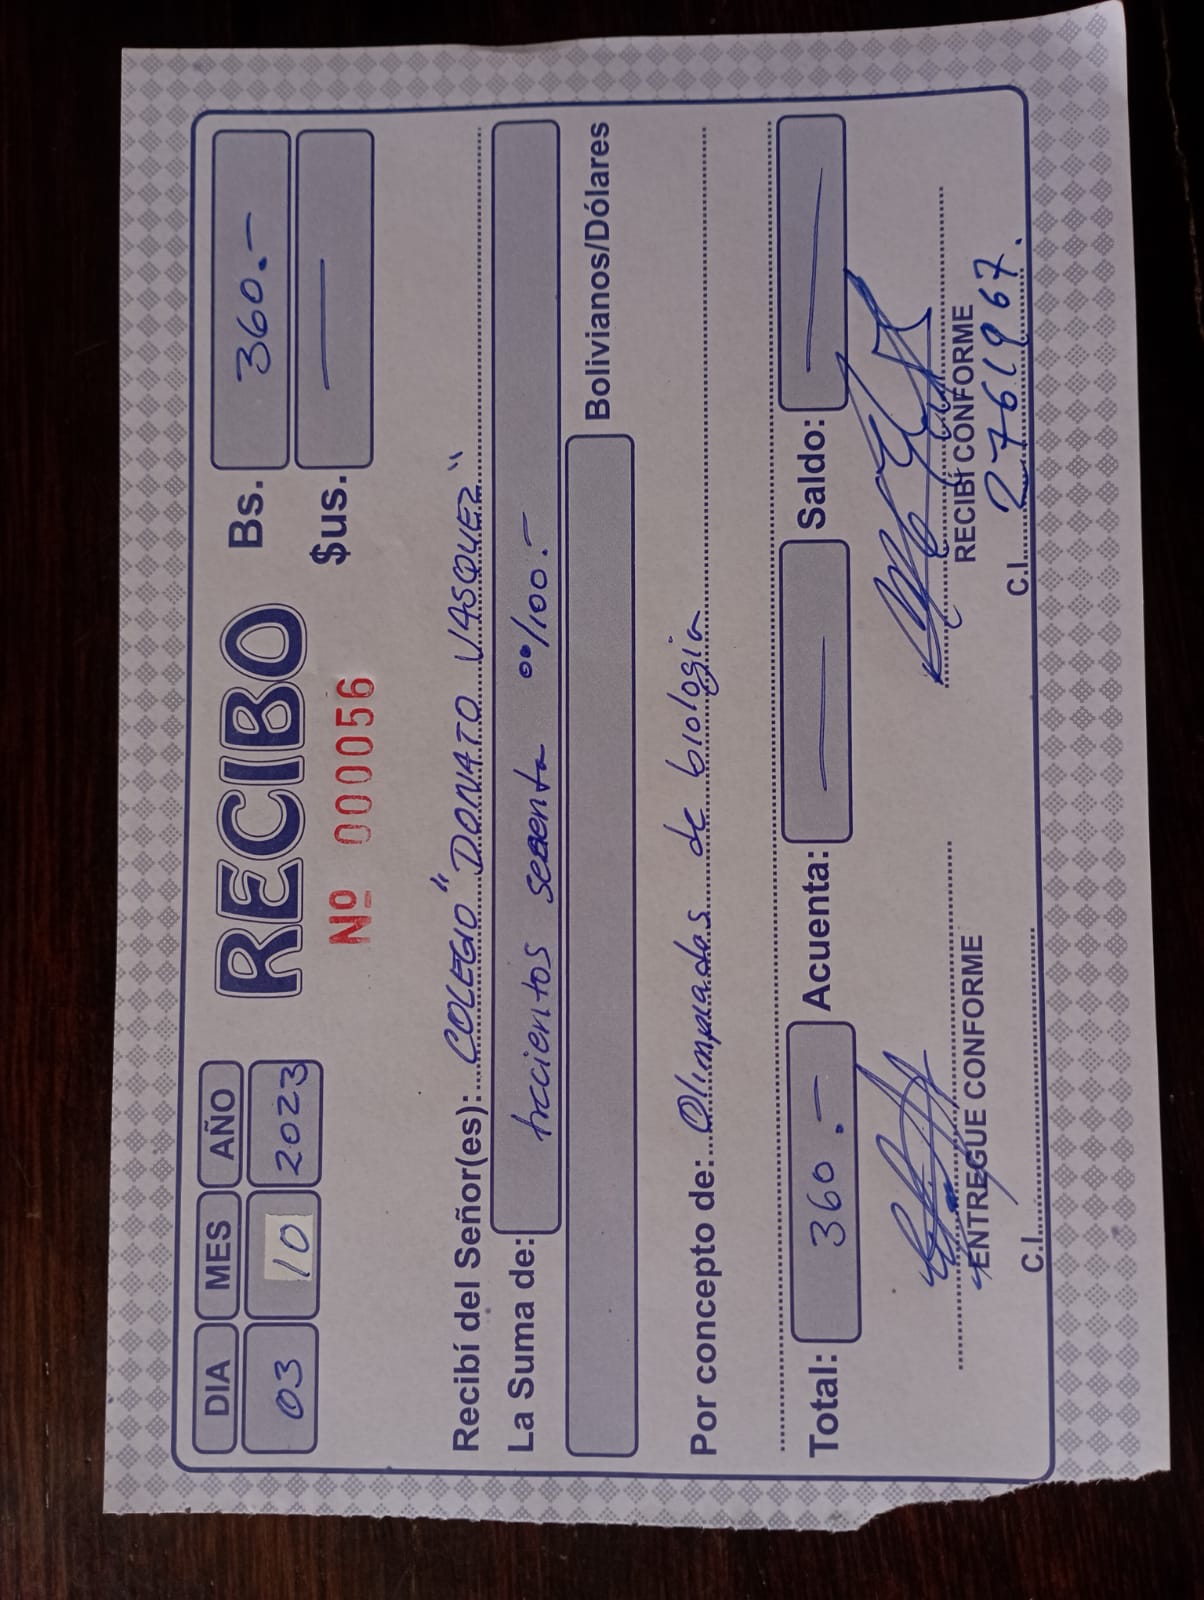 DIA MES AÑO
03 10 2023
RECIBO
Nº 000056
Bs. 360.-
$us. —
Recibí del Señor(es): COLEGIO "DONATO VASQUEZ"
La Suma de: trecientos sesenta 00/100.-
Bolivianos/Dólares
Por concepto de: Olimpiadas de biologia
Total: 360.- Acuenta: — Saldo: —
ENTREGUE CONFORME
C.I.
RECIBÍ CONFORME
C.I. 2761967.